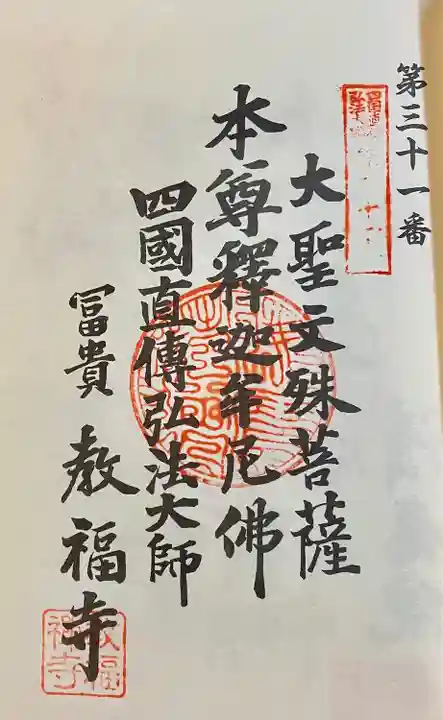 第三十一番
大聖文殊菩薩
本尊釋迦牟尼佛
四國直傳弘法大師
冨貴 教福寺
教福寺